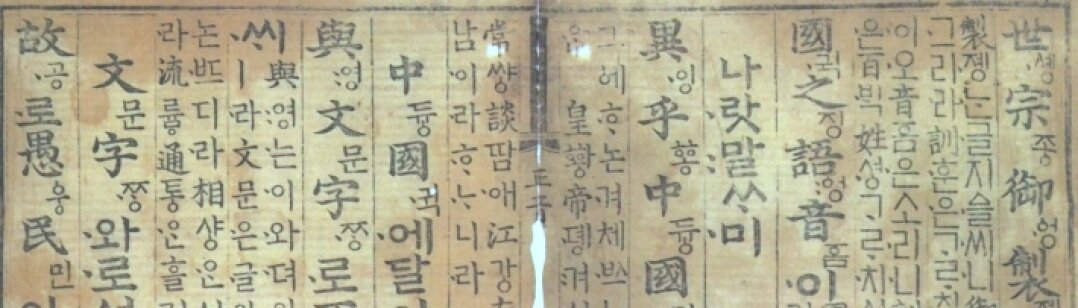 世솅宗종御엉製
製졩는글지ᅀᅳᆯ씨니
그리라訓훈은ᄀᆞᄅᆞ
이오音ᅙᅳᆷ은소리니
은百ᄇᆡᆨ姓셩ᄀᆞᄅᆞ치
國귁之징語ᅌᅥᆼ音ᅙᅳᆷ이
나랏말ᄊᆞ미
異잉乎ᅘᅩᆼ中듕國
그ᅌᅦᄒᆞ논겨체ᄡᅳ
皇ᅘᅪᆼ帝뎽겨시
常썅談땀애江강
남이라ᄒᆞᄂᆞ니라
中듕國귁에달
與영文문字ᄍᆞᆼ로
씨與영는이와뎌와
ᄊᆞㅣ라文문은글와
논ᄠᅳ디라相샹ᄋᆞᆫ
라流륳通통ᄋᆞᆫ흘
文문字ᄍᆞᆼ와로
故공로愚웅民민